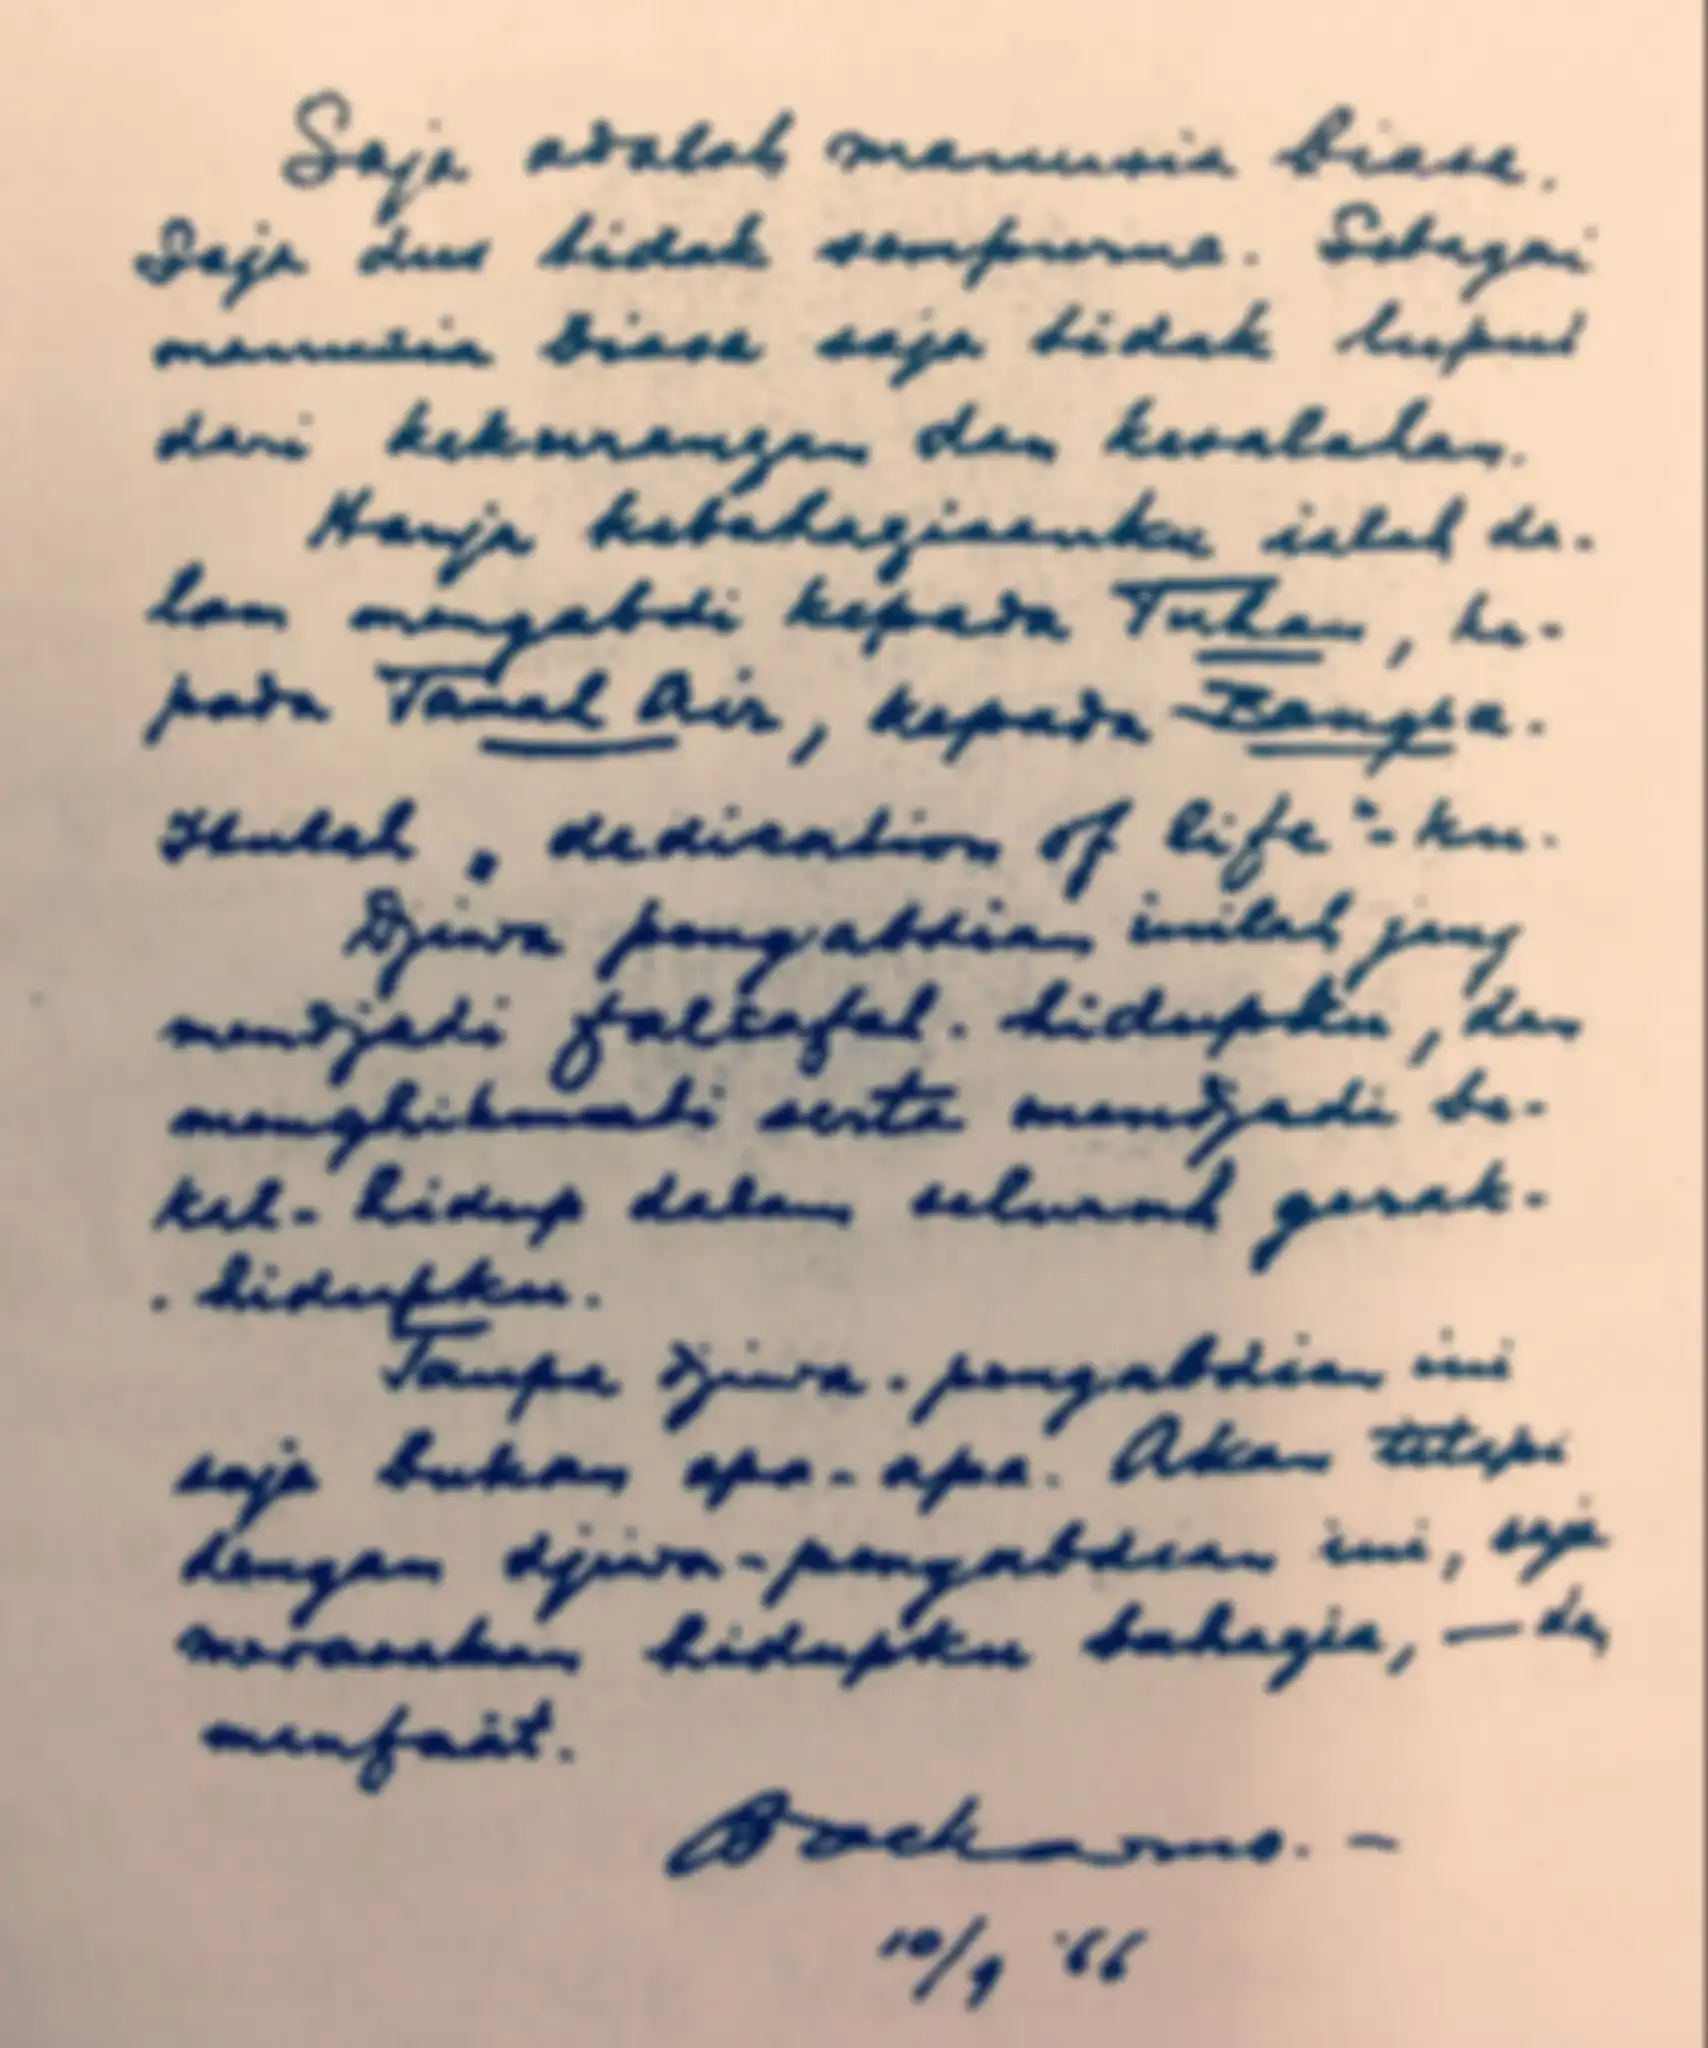 Saja adalah manusia biasa.
Saja dus tidak sempurna. Sebagai
manusia biasa saja tidak luput
dari kekurangan dan kesalahan.
Hanja kebahagiaanku ialah da-
lam mengabdi kepada Tuhan, ke-
pada Tanah Air, kepada Bangsa.
Itulah „dedication of life"-ku.
Djiwa pengabdian inilah jang
mendjadi falsafah-hidupku, dan
menghikmati serta mendjadi be-
kal-hidup dalam seluruh gerak-
-hidupku.
Tanpa djiwa-pengabdian ini
saja bukan apa-apa. Akan tetapi
dengan djiwa-pengabdian ini, saja
merasakan hidupku bahagia, — dan
manfaat.
Soekarno. —
10/9 '66